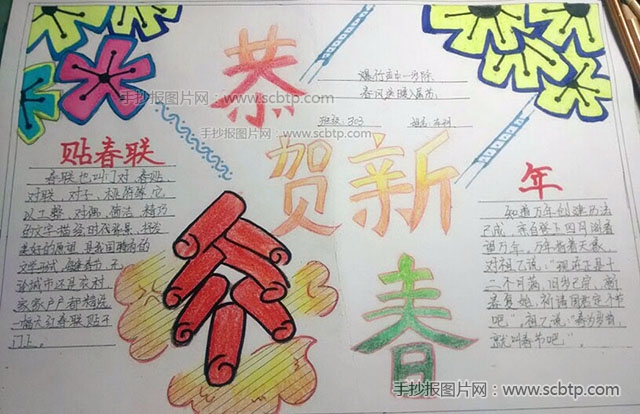 恭
贺新
春
手抄报图片网：www.scbtp.com
爆竹声中一岁除
春风送暖入屠苏
手抄报图片网：www.scbtp.com
班级：303
姓名：
贴春联
春联也叫门对、春贴、
对联、对子、桃符等，它
以工整、对偶、简洁、精巧
的文字描绘时代背景，抒发
美好的愿望，是我国特有的
文学形式，每逢春节，无
论城市还是农村，
家家户户都精选
一幅大红春联贴于
门上。
年
知道万年创建历法
已成，亲自登上日月阁看
望万年。万年指着天象，
对祖乙说：“现在正是十
二个月满，旧岁已完，新
春复始，祈请国君定个节
吧”。祖乙说：“春为岁首，
就叫春节吧”。
手抄报图片网：www.scbtp.com